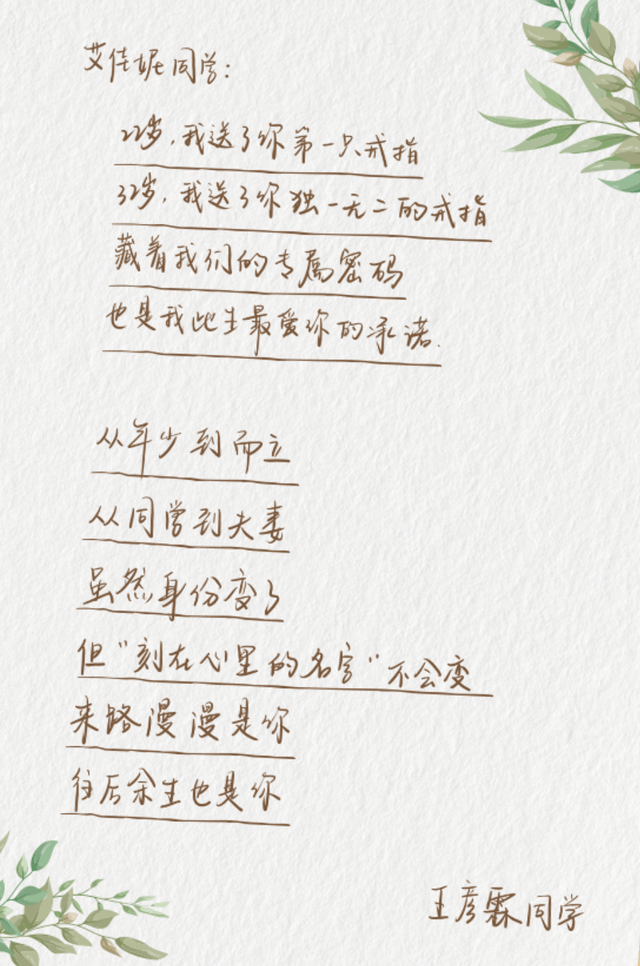 艾佳妮同学：
22岁，我送了你第一只戒指
32岁，我送了你独一无二的戒指
藏着我们的专属密码
也是我此生最爱你的承诺.
从年少到而立
从同学到夫妻
虽然身份变了
但“刻在心里的名字”不会变
来路漫漫是你
往后余生也是你
王彦霖同学